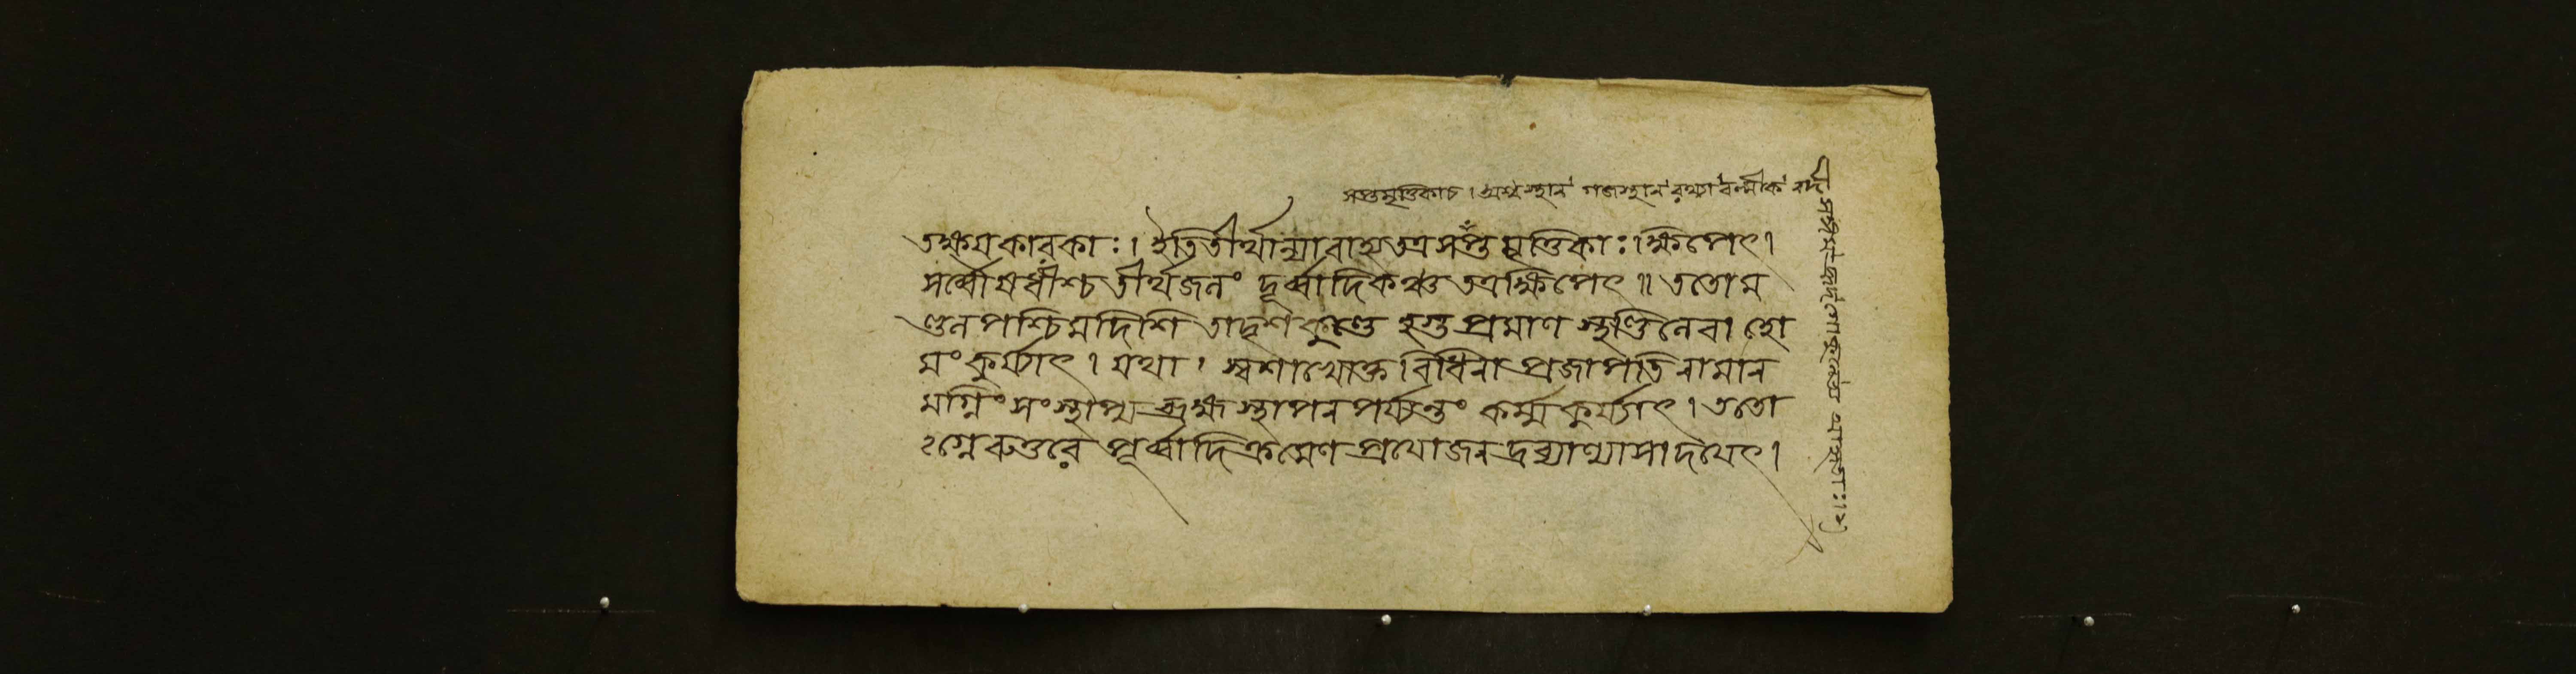 সপ্তমৃত্তিকাচ। অশ্বস্থান গজস্থান রথ্যা বল্মীক নদী
তক্ষয়কারকাঃ। ইতিতীর্থান্যাবাহ্য তত্র সপ্ত মৃত্তিকাঃ ক্ষিপেৎ।
সর্ব্বৌষধীশ্চ তীর্থজলং দূর্ব্বাদিকঞ্চ তত্র ক্ষিপেৎ॥ ততোম
ণ্ডল পশ্চিমদিশি তাদৃশকুণ্ডে হস্তপ্রমাণ স্থণ্ডিলেবা হো
মং কুর্য্যাৎ। যথা। স্বশাখোক্ত বিধিনা প্রজাপতি নামান
মগ্নিং সংস্থাপ্য ব্রহ্মস্থাপন পর্য্যন্তং কর্ম্ম কুর্য্যাৎ। ততো
ঽগ্নেরুত্তরে পূর্ব্বাদিক্রমেণ প্রয়োজন দ্রব্যাণ্যাসাদয়েৎ।